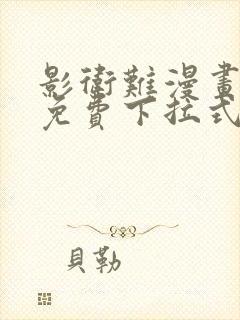 影衛難漫畫
免費下拉式
貝勒